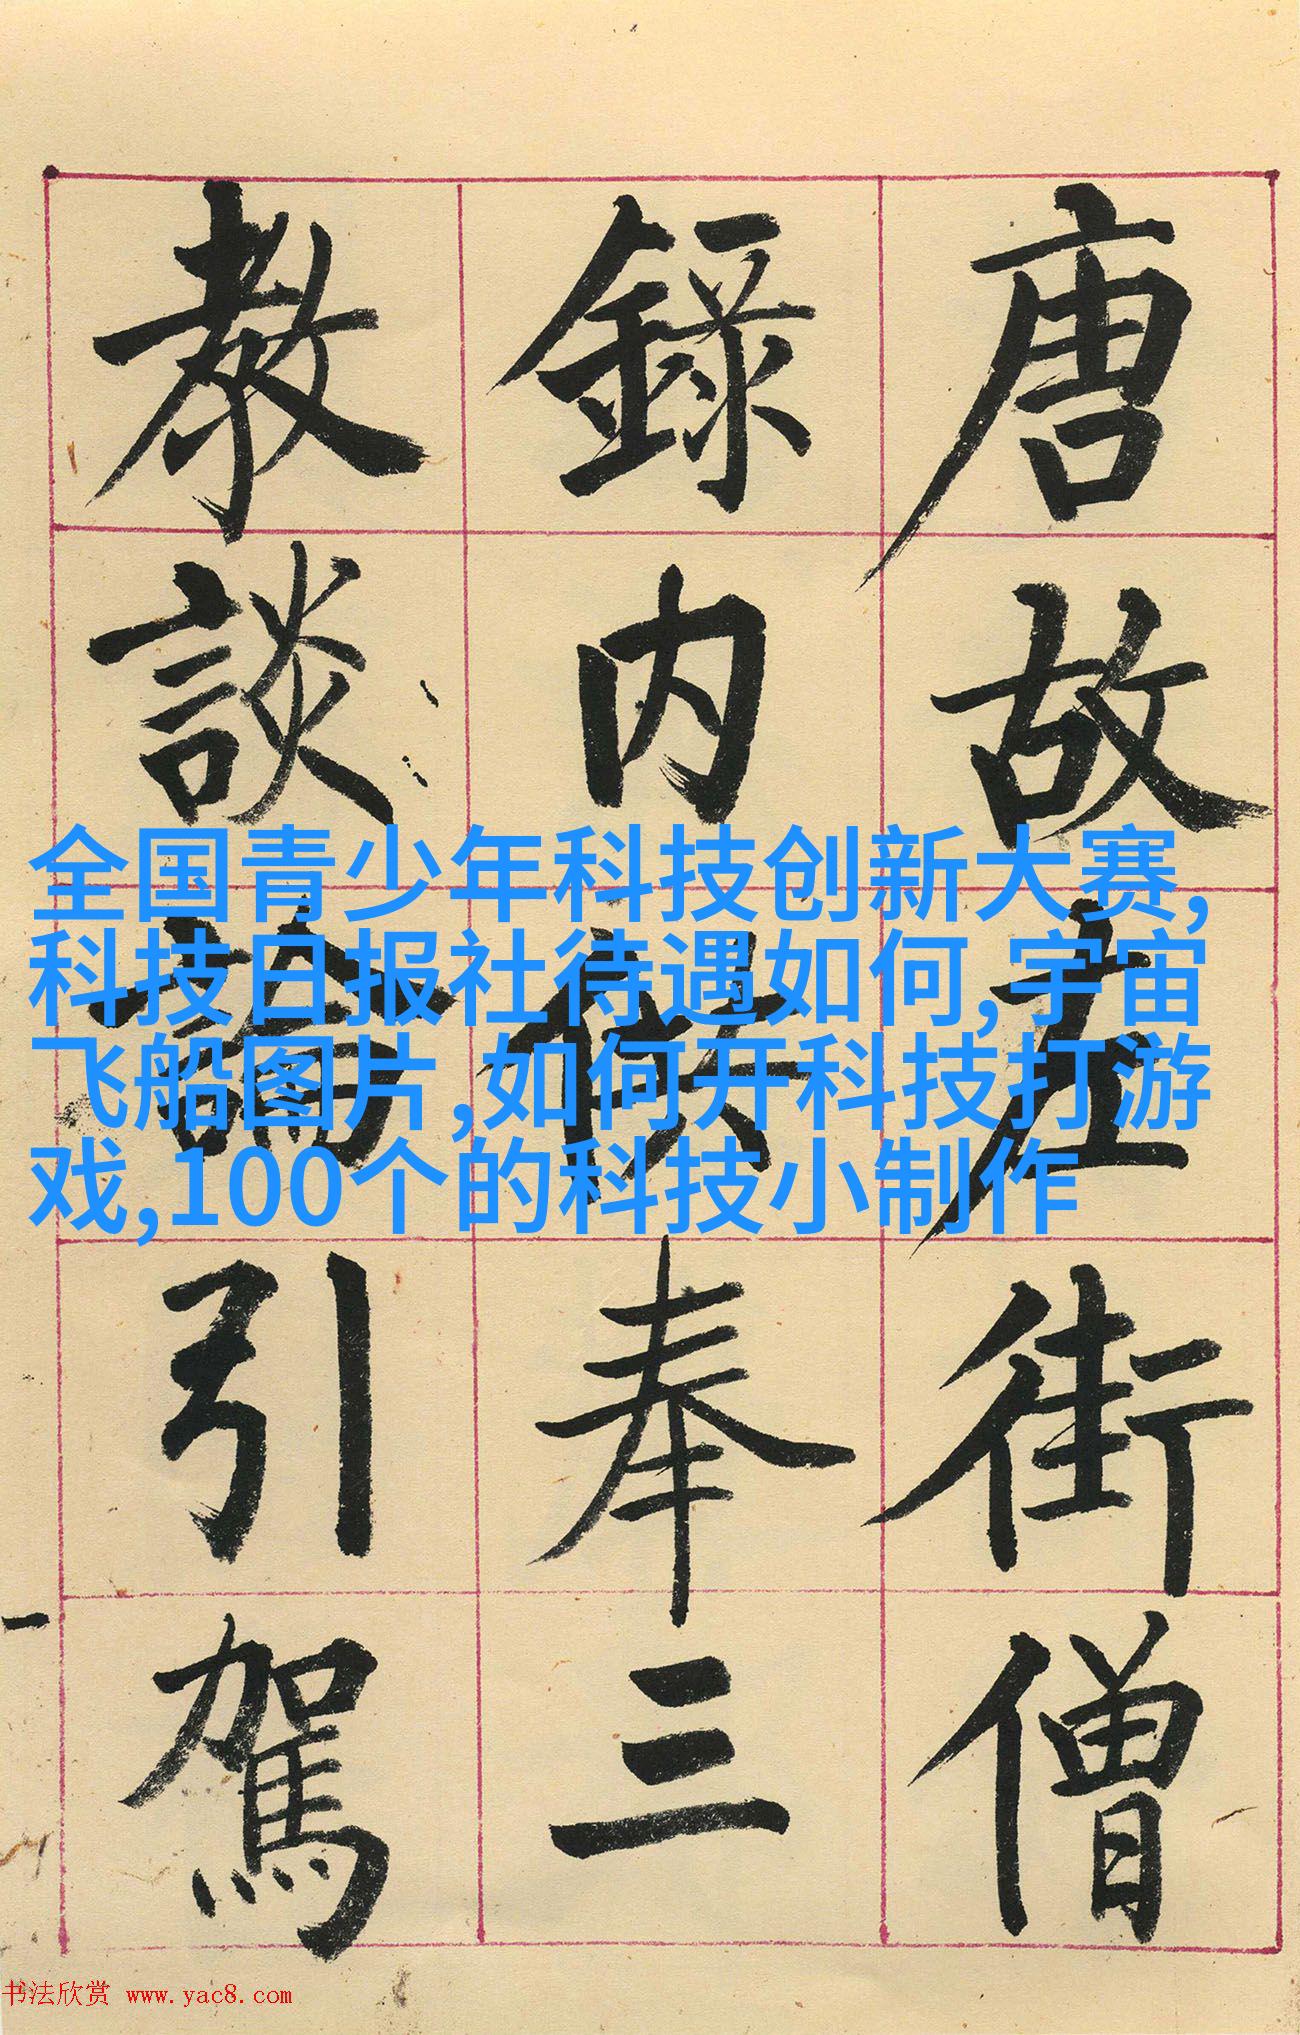 唐故左街僧
錄内供奉三
教談論引駕
全国青少年科技创新大赛,
科技日报社待遇如何,宇宙
飞船图片,如何开科技打游
戏,100个的科技小制作
书法欣赏 www.yac8.com